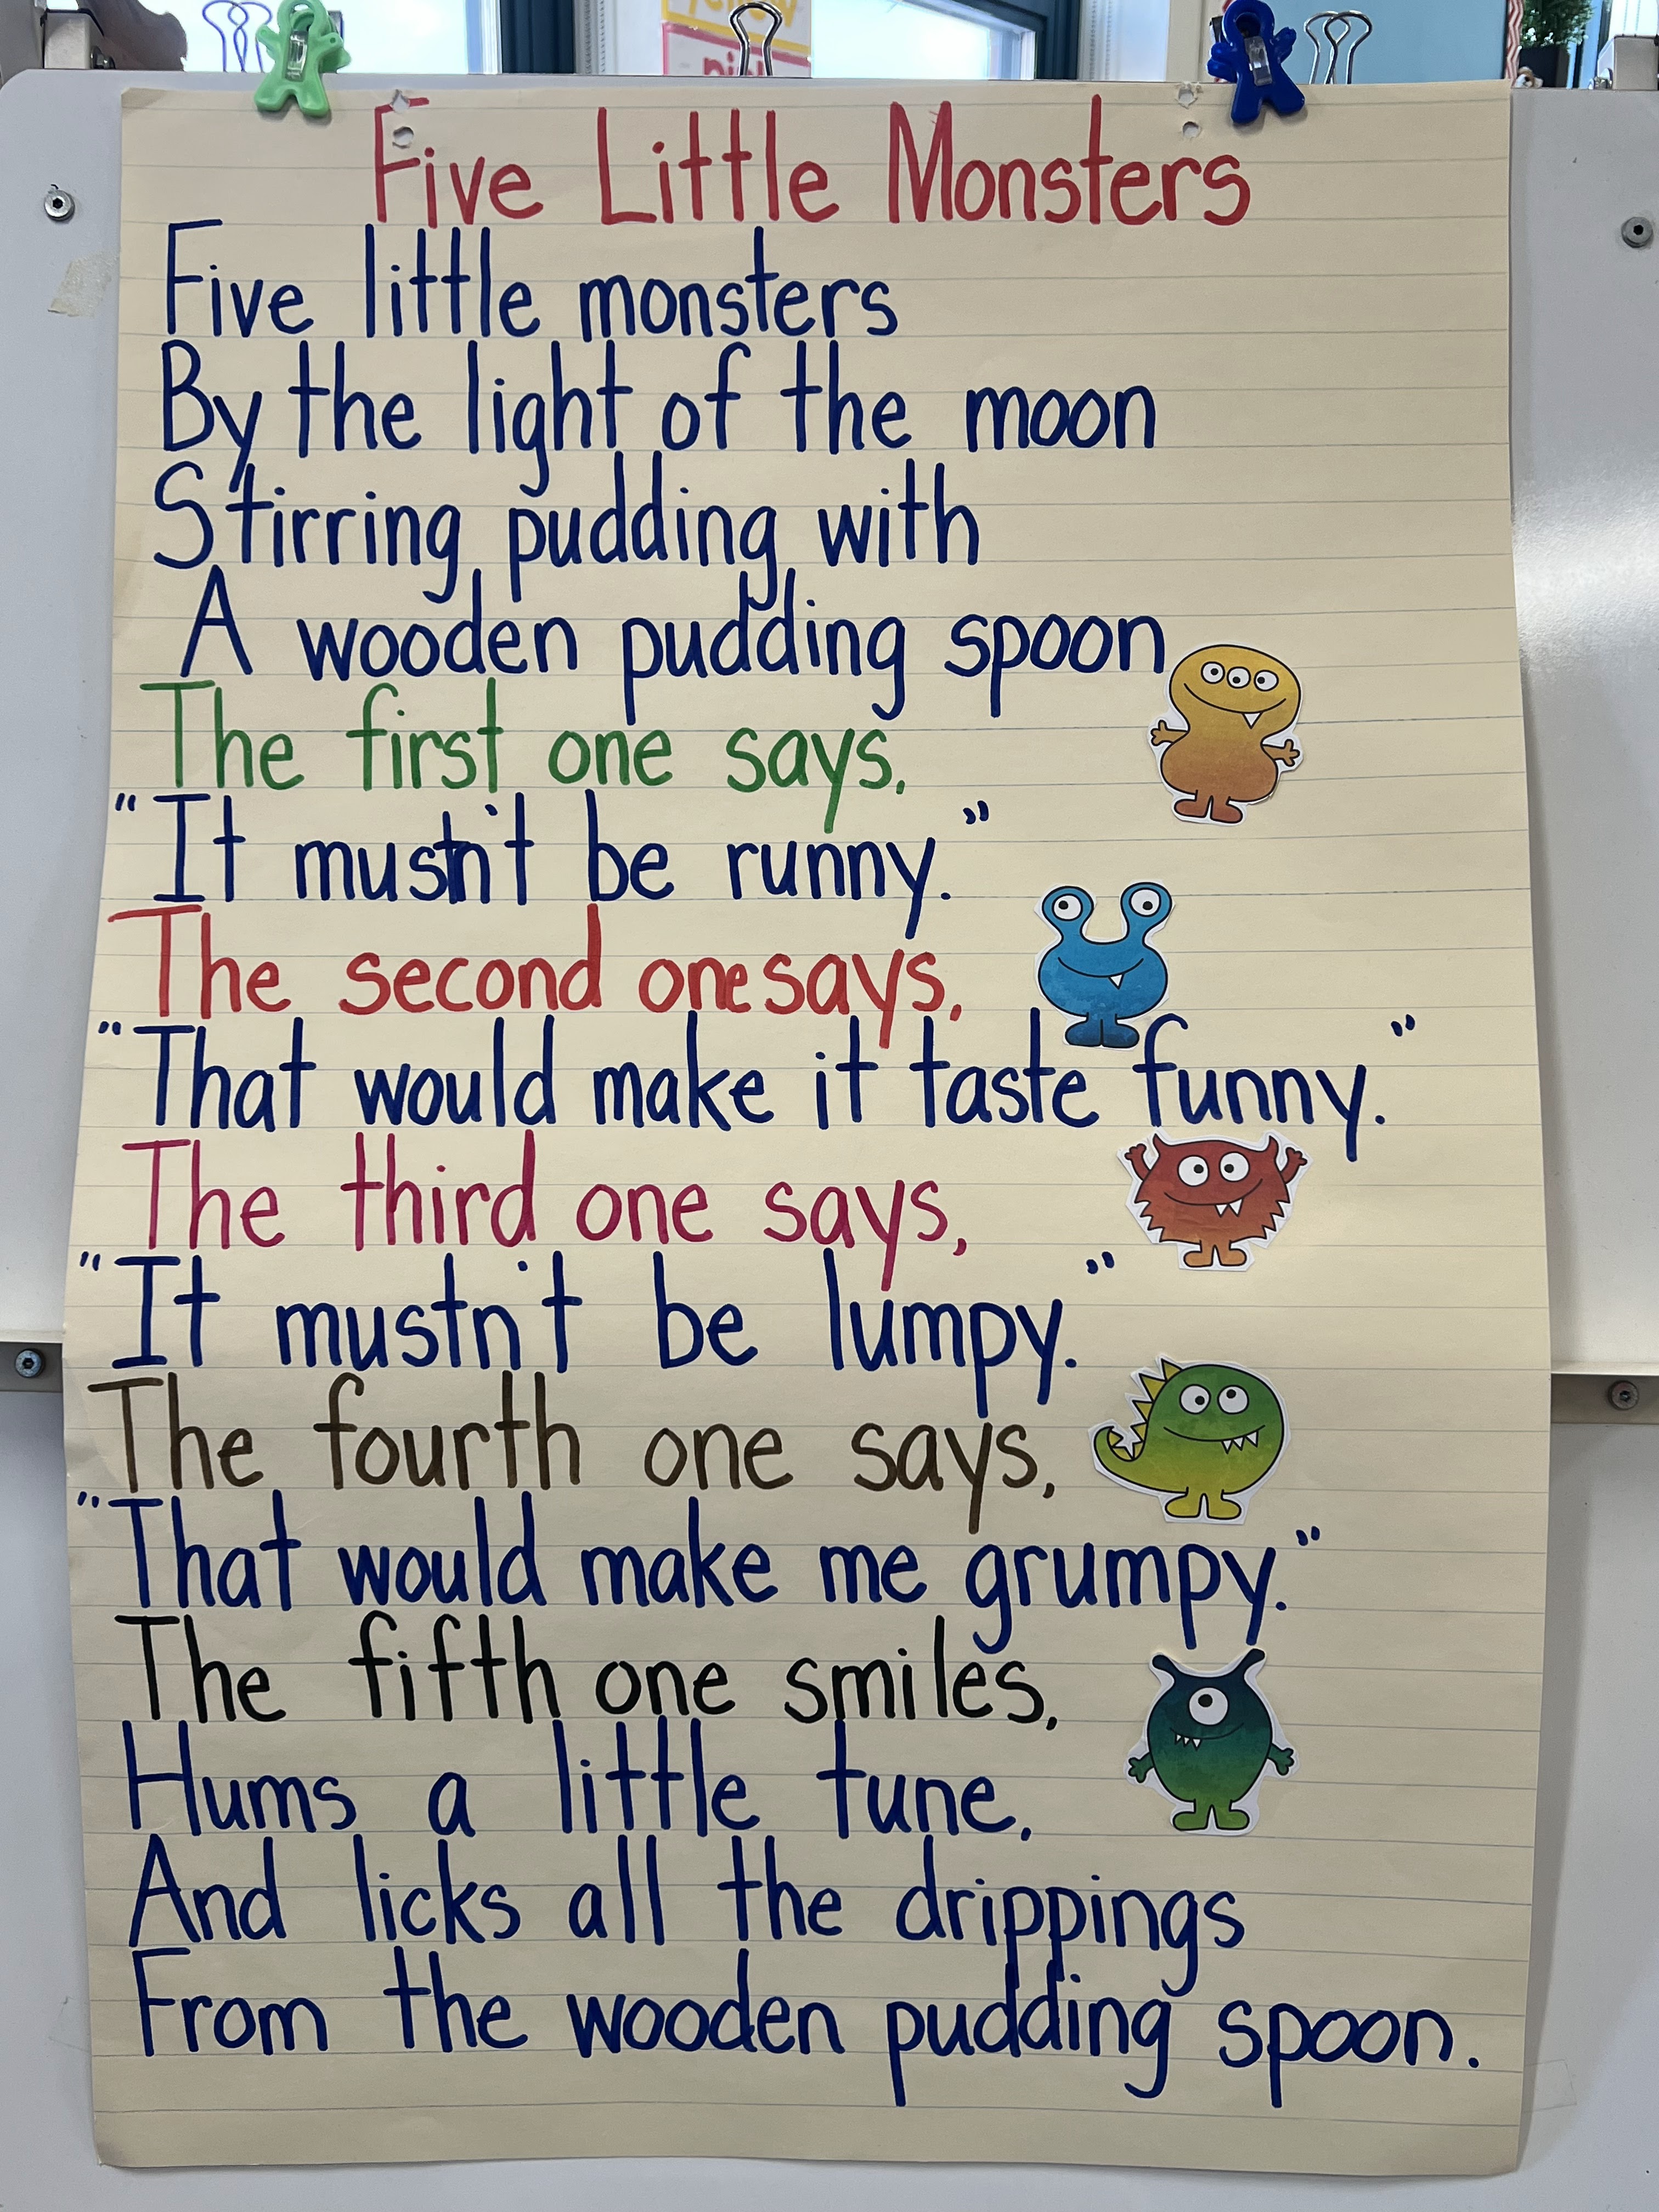 Five Little Monsters
Five little monsters
By the light of the moon
Stirring pudding with
A wooden pudding spoon
The first one says,
"It mustn't be runny."
The second one says,
"That would make it taste funny."
The third one says,
"It mustn't be lumpy."
The fourth one says,
"That would make me grumpy."
The fifth one smiles,
Hums a little tune,
And licks all the drippings
From the wooden pudding spoon.